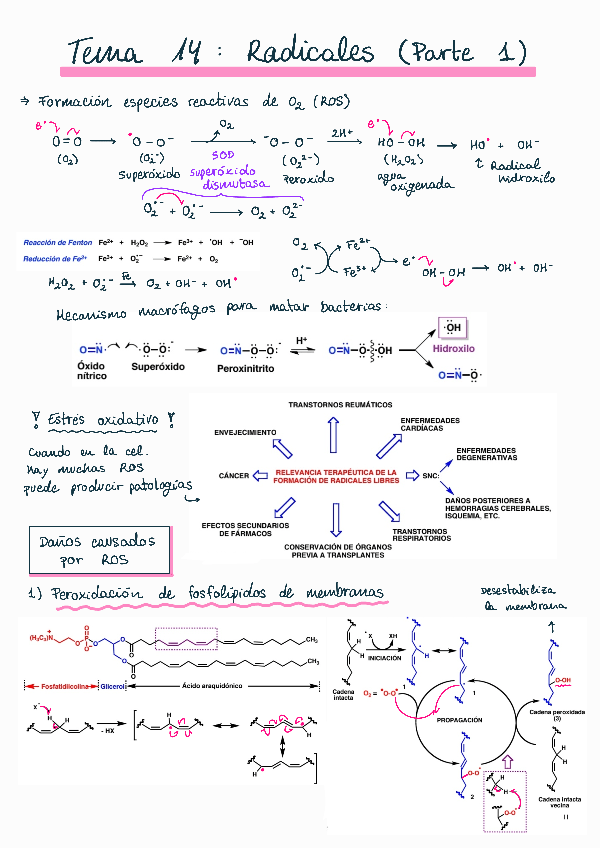 Tema 14: Radicales (Parte 1)
→ Formación especies reactivas de O2 (ROS)
e⁻ O=O → •O-O⁻ → ⁻O-O⁻ 2H+ → e⁻ HO-OH → HO• + OH⁻
O2
(O2) (O2•⁻) SOD (O2²⁻) (H2O2) ↑ Radical hidroxilo
Superóxido Superóxido dismutasa Peroxido agua oxigenada
O2•⁻ + O2•⁻ → O2 + O2²⁻
Reacción de Fenton Fe2+ + H2O2 → Fe3+ + •OH + ⁻OH
Reducción de Fe3+ Fe3+ + O2⁻ → Fe2+ + O2
H2O2 + O2•⁻ Fe → O2 + OH⁻ + OH•
O2 Fe2+
O2•⁻ Fe3+ e⁻ OH-OH → OH• + OH⁻
Mecanismo macrófagos para matar bacterias:
O=N• •O-O:⁻ → O=N-O-O:⁻ H+ ⇌ O=N-O-OH
•OH
Hidroxilo
O=N-O•
Óxido nítrico
Superóxido
Peroxinitrito
¡ Estrés oxidativo !
Cuando en la cel.
hay muchas ROS
puede producir patologías
TRANSTORNOS REUMÁTICOS
ENVEJECIMIENTO
ENFERMEDADES
CARDÍACAS
CÁNCER
RELEVANCIA TERAPÉUTICA DE LA
FORMACIÓN DE RADICALES LIBRES
SNC:
ENFERMEDADES
DEGENERATIVAS
DAÑOS POSTERIORES A
HEMORRAGIAS CEREBRALES,
ISQUEMIA, ETC.
EFECTOS SECUNDARIOS
DE FÁRMACOS
TRANSTORNOS
RESPIRATORIOS
CONSERVACIÓN DE ÓRGANOS
PREVIA A TRANSPLANTES
Daños causados
por ROS
1) Peroxidación de fosfolípidos de membranas
Desestabiliza
la membrana
(H3C)3N
CH3
CH3
Fosfatidilcolina
Glicerol
Ácido araquidónico
X•
H H
- HX
H
H
H
Cadena
intacta
•X XH
INICIACIÓN
O2 = •O-O•
1
1
PROPAGACIÓN
O-O•
2
O-OH
Cadena peroxidada
(3)
Cadena intacta
vecina
O-O•